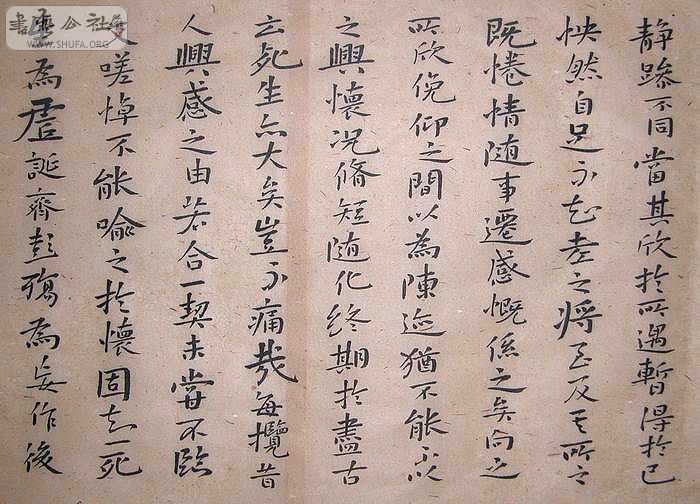 静躁不同當其欣於所遇暫得於己
怏然自足不知老之將至及其所之
既惓情随事遷感慨係之矣向之
所欣俛仰之間以為陳迹猶不能不以
之興懷况脩短随化終期於盡古
云死生亦大矣豈不痛哉每攬昔
人興感之由若合一契未嘗不臨
文嗟悼不能喻之於懷固知一死
生為虚誕齊彭殤為妄作後
書法公社
WWW.SHUFA.ORG